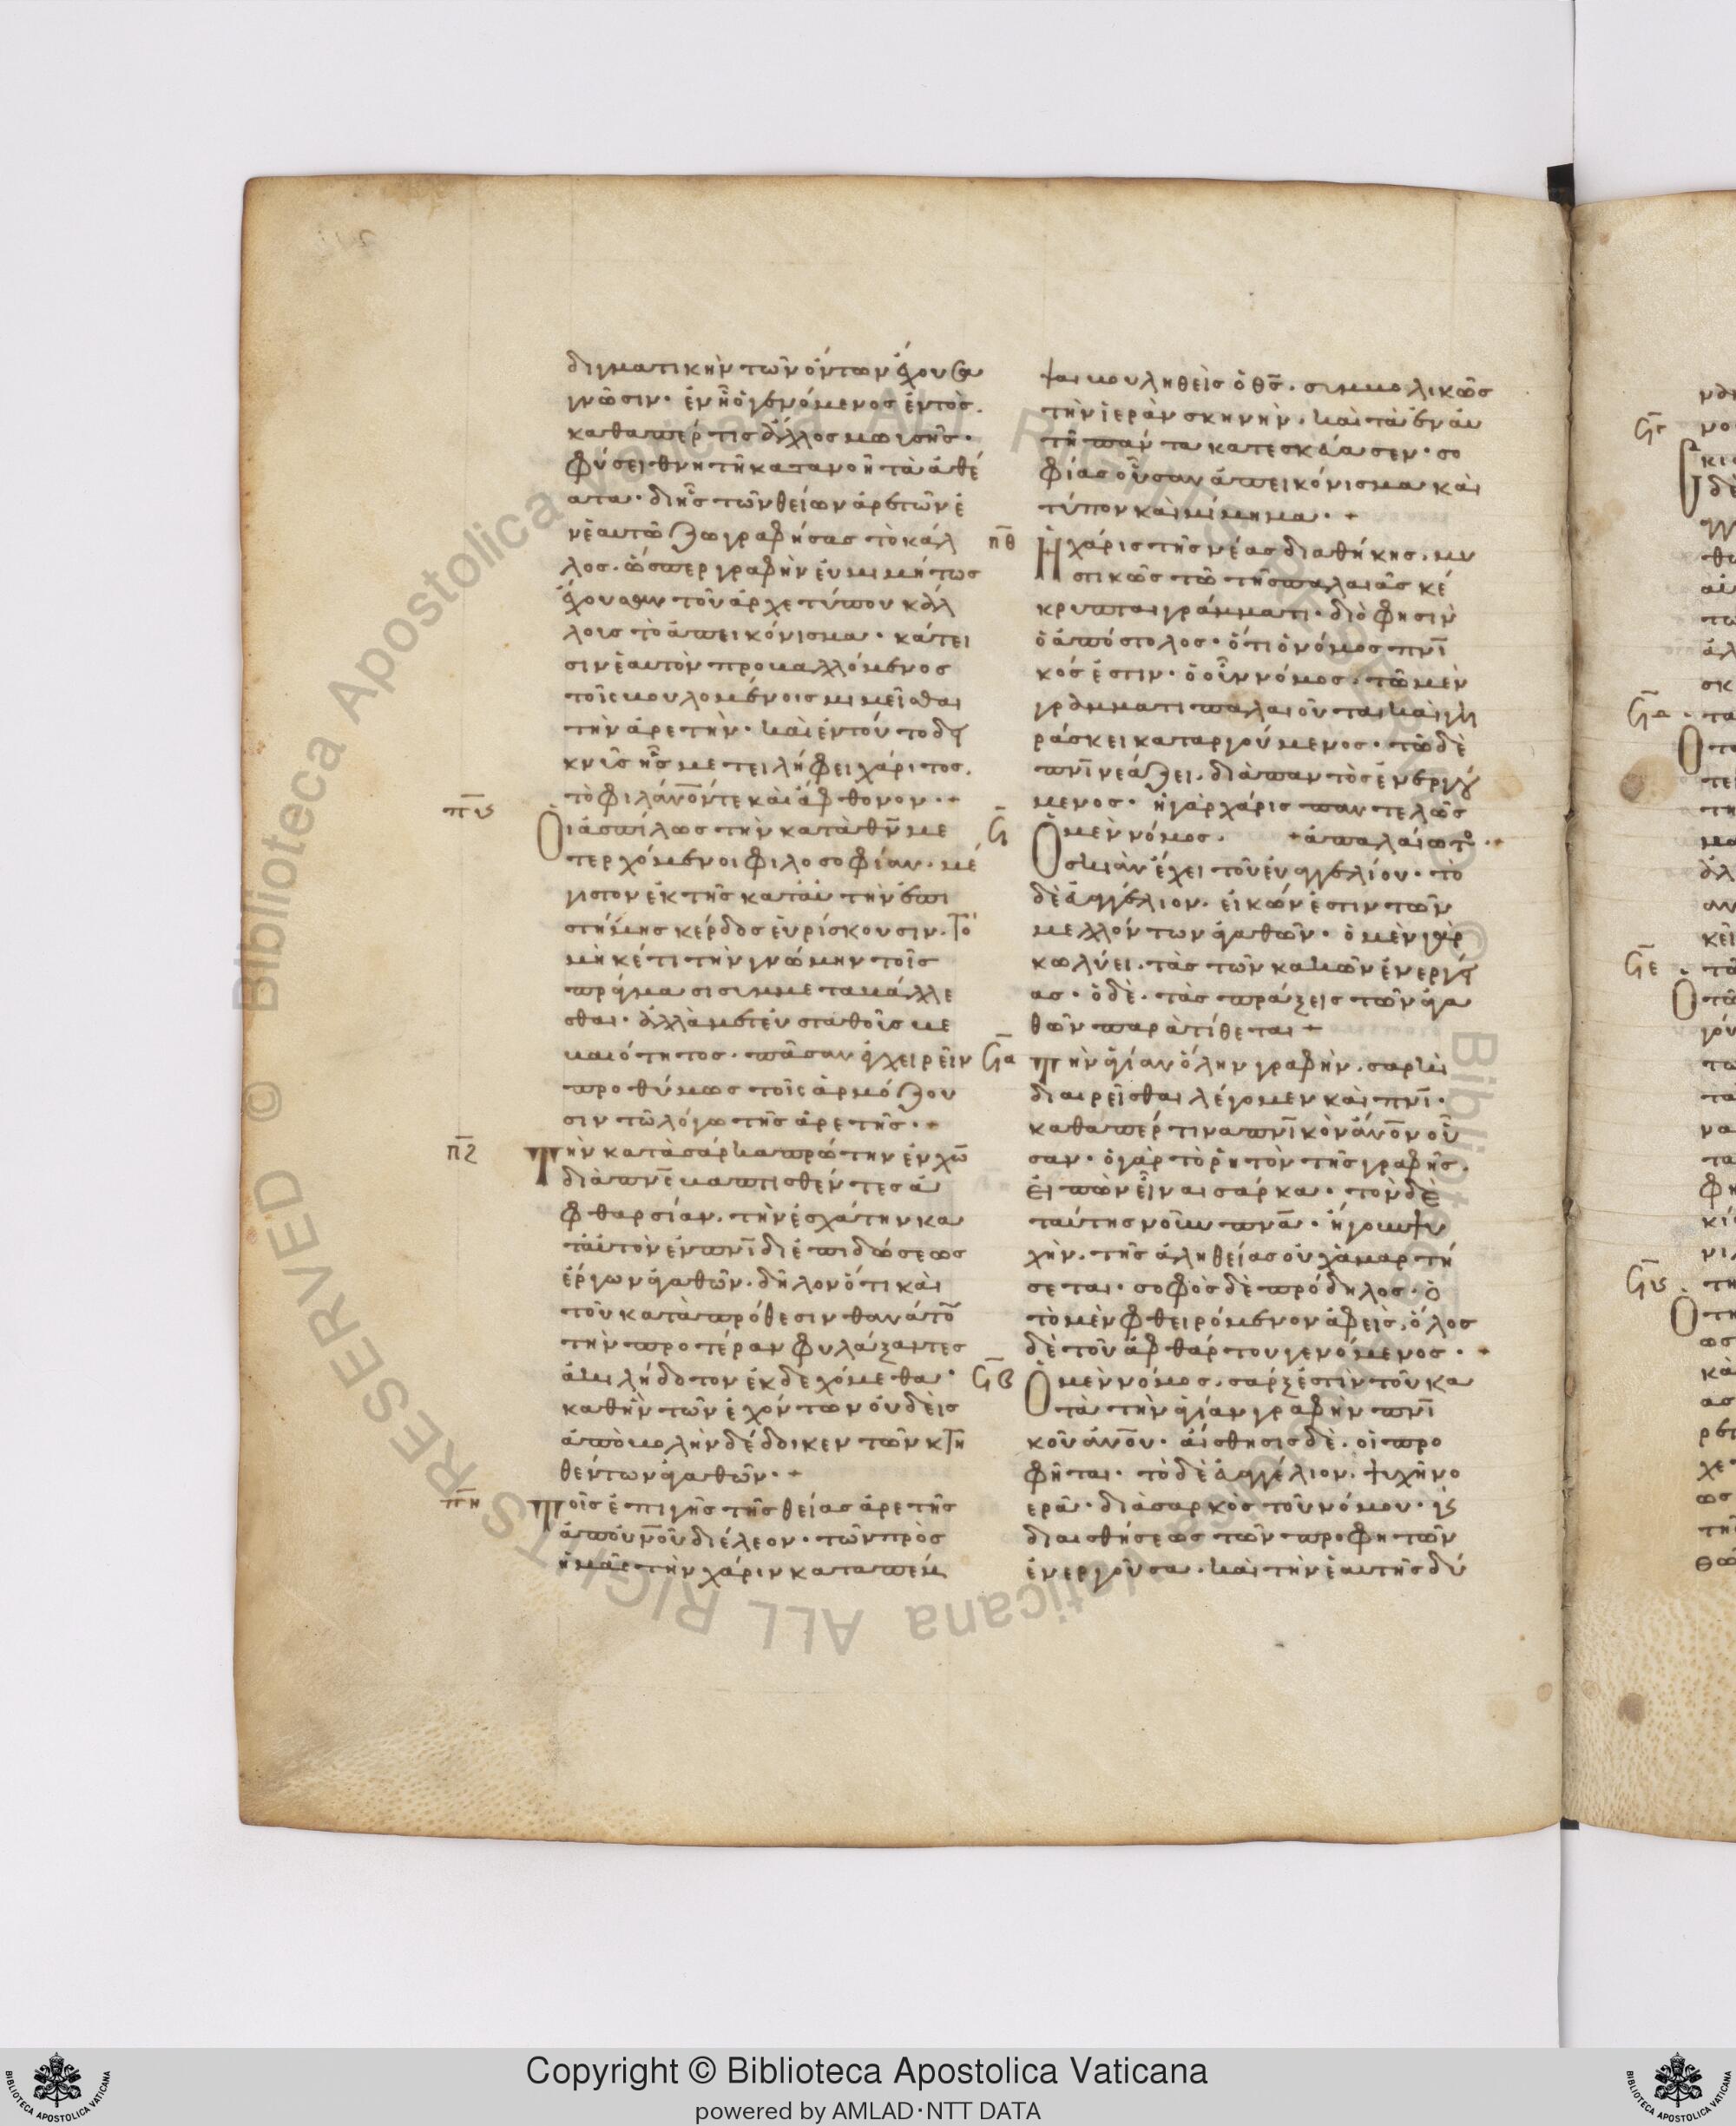 διγματικὴν τῶν ὄντων ἔχουσα
γνῶσιν· ἐν ᾗ ὁ γενόμενος ἐντὸς.
καθαπέρ τις ἄλλος μωϋσῆς·
φύσει θνητῆ κατανοῆ τὰ ἀθέ
ατα· δι ἧς τῶν θείων ἀρετῶν ἐ
ν ἑαυτῶ ζωγραφήσας τὸ κάλ
λος· ὥσπερ γραφὴν εὐμιμήτως
ἔχουσαν τοῦ ἀρχετύπου κάλ
λους τὸ ἀπεικόνισμα· κάτει
σιν ἑαυτὸν προβαλλόμενος
τοῖς βουλομένοις μιμεῖσθαι
τὴν ἀρετὴν· καὶ ἐν τούτο δει
κνὺς ἧς μετειλήφει χάριτος.
τὸ φιλάνον τε καὶ ἄφθονον·+
πϛ Οἱ ἀσπίλως τὴν κατὰ θν με
τερχόμενοι φιλοσοφίαν· μέ
γιστον ἐκ τῆς κατ' αὐτὴν ἐπι
στήμης κέρδος εὑρίσκουσιν. Τὸ
μηκέτι τὴν γνώμην τοῖς
πράγμασι συμμεταβάλλε
σθαι· ἀλλὰ μετ' εὐσταθοῦς βε
βαιότητος· πᾶσαν ἐγχειρεῖν
προθύμως τοῖς ἁρμόζου
σιν τῶ λόγω τῆς ἀρετῆς·+
πζ Τὴν κατὰ σάρκα πρώτην ἐν χω
διὰ πνς βαπτισθέντες ἀ
φθαρσίαν. τὴν ἐσχάτην κα
τ' αὐτὸν ἐν πνι δι ἐπιδώσεως
ἔργων ἀγαθῶν. δηλονότι καὶ
τοῦ κατὰ πρόθεσιν θανάτου
τὴν προτέραν φυλάξαντες
ἀκιλήδοτον ἐκδεχόμεθα·
καθ' ἣν τῶν ἐχόντων οὐδεὶς
ἀποβολὴν δέδοικεν τῶν κτη
θέντων ἀγαθῶν·+
πη Τοῖς ἐπὶ γῆς τῆς θείας ἀρετῆς
ἀπ' οὐνοῦ δι ἔλεον· τῶν πρὸς
ἡμᾶς τὴν χάριν καταπέμ
ψαι βουληθεὶς ὁ θς. συμβολικῶς
τὴν ἱερὰν σκηνὴν. καὶ τὰ ἐν αὐ
τῆ πάντα κατεσκεύασεν· σο
φίας οὖσαν ἀπεικόνισμα καὶ
τύπον καὶ μίμημα·+
πθ Ἡ χάρις τῆς νέας διαθήκης. μυ
στικῶς τῶ τῆς παλαιᾶς κέ
κρυπται γράμματι· διὸ φησὶν
ὁ ἀπόστολος· ὅτι ὁ νόμος πνι
κός ἐστιν· ὁ οὖν νόμος. τῶ μὲν
γράμματι παλαιοῦται καὶ γη
ράσκει καταργούμενος· τῶ δὲ
πνι νεάζει. διὰ παντὸς ἐνεργού
μενος· ἡ γὰρ χάρις παντελῶς
Ϟ Ὁ μὲν νόμος. +ἀπαλαίωτος·+
σκιὰν ἔχει τοῦ εὐαγγελίου· τὸ
δὲ εὐαγγέλιον. εἰκών ἐστιν τῶν
μελλόντων ἀγαθῶν· ὁ μὲν γὰρ
κωλύει. τὰς τῶν κακῶν ἐνεργεί
ας· ὁ δὲ. τὰς πράξεις τῶν ἀγα
θῶν παρατίθεται+
Ϟα Τὴν ἁγίαν ὅλην γραφὴν. σαρκὶ
διαιρεῖσθαι λέγομεν καὶ πνι·
καθαπέρ τινα πνικὸν ἄνον οὖ
σαν· ὁ γὰρ τὸ ῥητὸν τῆς γραφῆς.
εἰπὼν εἶναι σάρκα· τὸν δὲ
ταύτης νοῦν πνα· ἤγουν ψυ
χὴν. τῆς ἀληθείας οὐχ ἁμαρτή
σεται· σοφὸς δὲ πρόδηλος· ὁ
τὸ μὲν φθειρόμενον ἀφεὶς. ὅλος
δὲ τοῦ ἀφθάρτου γενόμενος·+
Ϟβ Ὁ μὲν νόμος. σάρξ ἐστὶν τοῦ κα
τὰ τὴν ἁγίαν γραφὴν πνι
κοῦ ἀνου· αἴσθησις δὲ. οἱ προ
φῆται· τὸ δὲ εὐαγγέλιον. ψυχὴ νο
ερὰ· διὰ σαρκὸς τοῦ νόμου· καὶ
δι αἰσθήσεως τῶν προφητῶν
ἐνεργοῦσα. καὶ τὴν ἑαυτῆς δύ
Ϟγ
Ϟδ
Ϟε
Ϟϛ
Copyright © Biblioteca Apostolica Vaticana
powered by AMLAD・NTT DATA